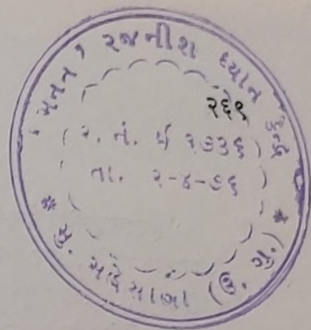 'મનન' રજનીશ ધ્યાન કેન્દ્ર
૨૬૧
(ર. નં. ઈ ૨૭૩૬)
તા. ૨-૪-૭૬
* મુ. મહેસાણા (ઉ. ગુ.) *